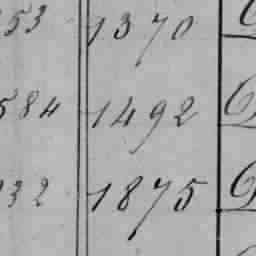 53 1370
584 1492
32 1875